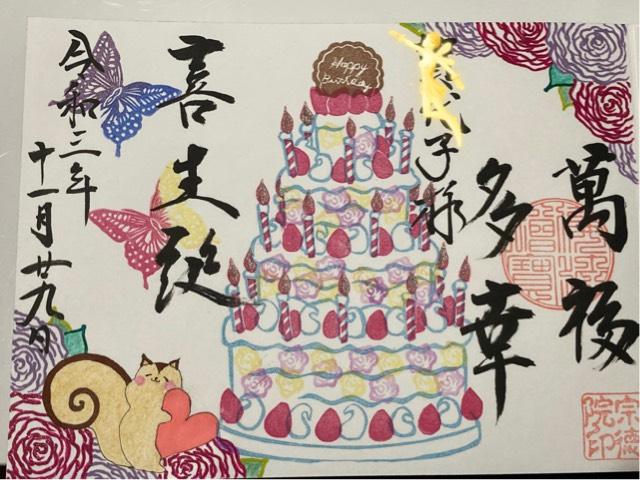 萬福
多幸
子様
Happy
Birthday
喜生誕
令和三年
十一月廿九日
宗徳
院印